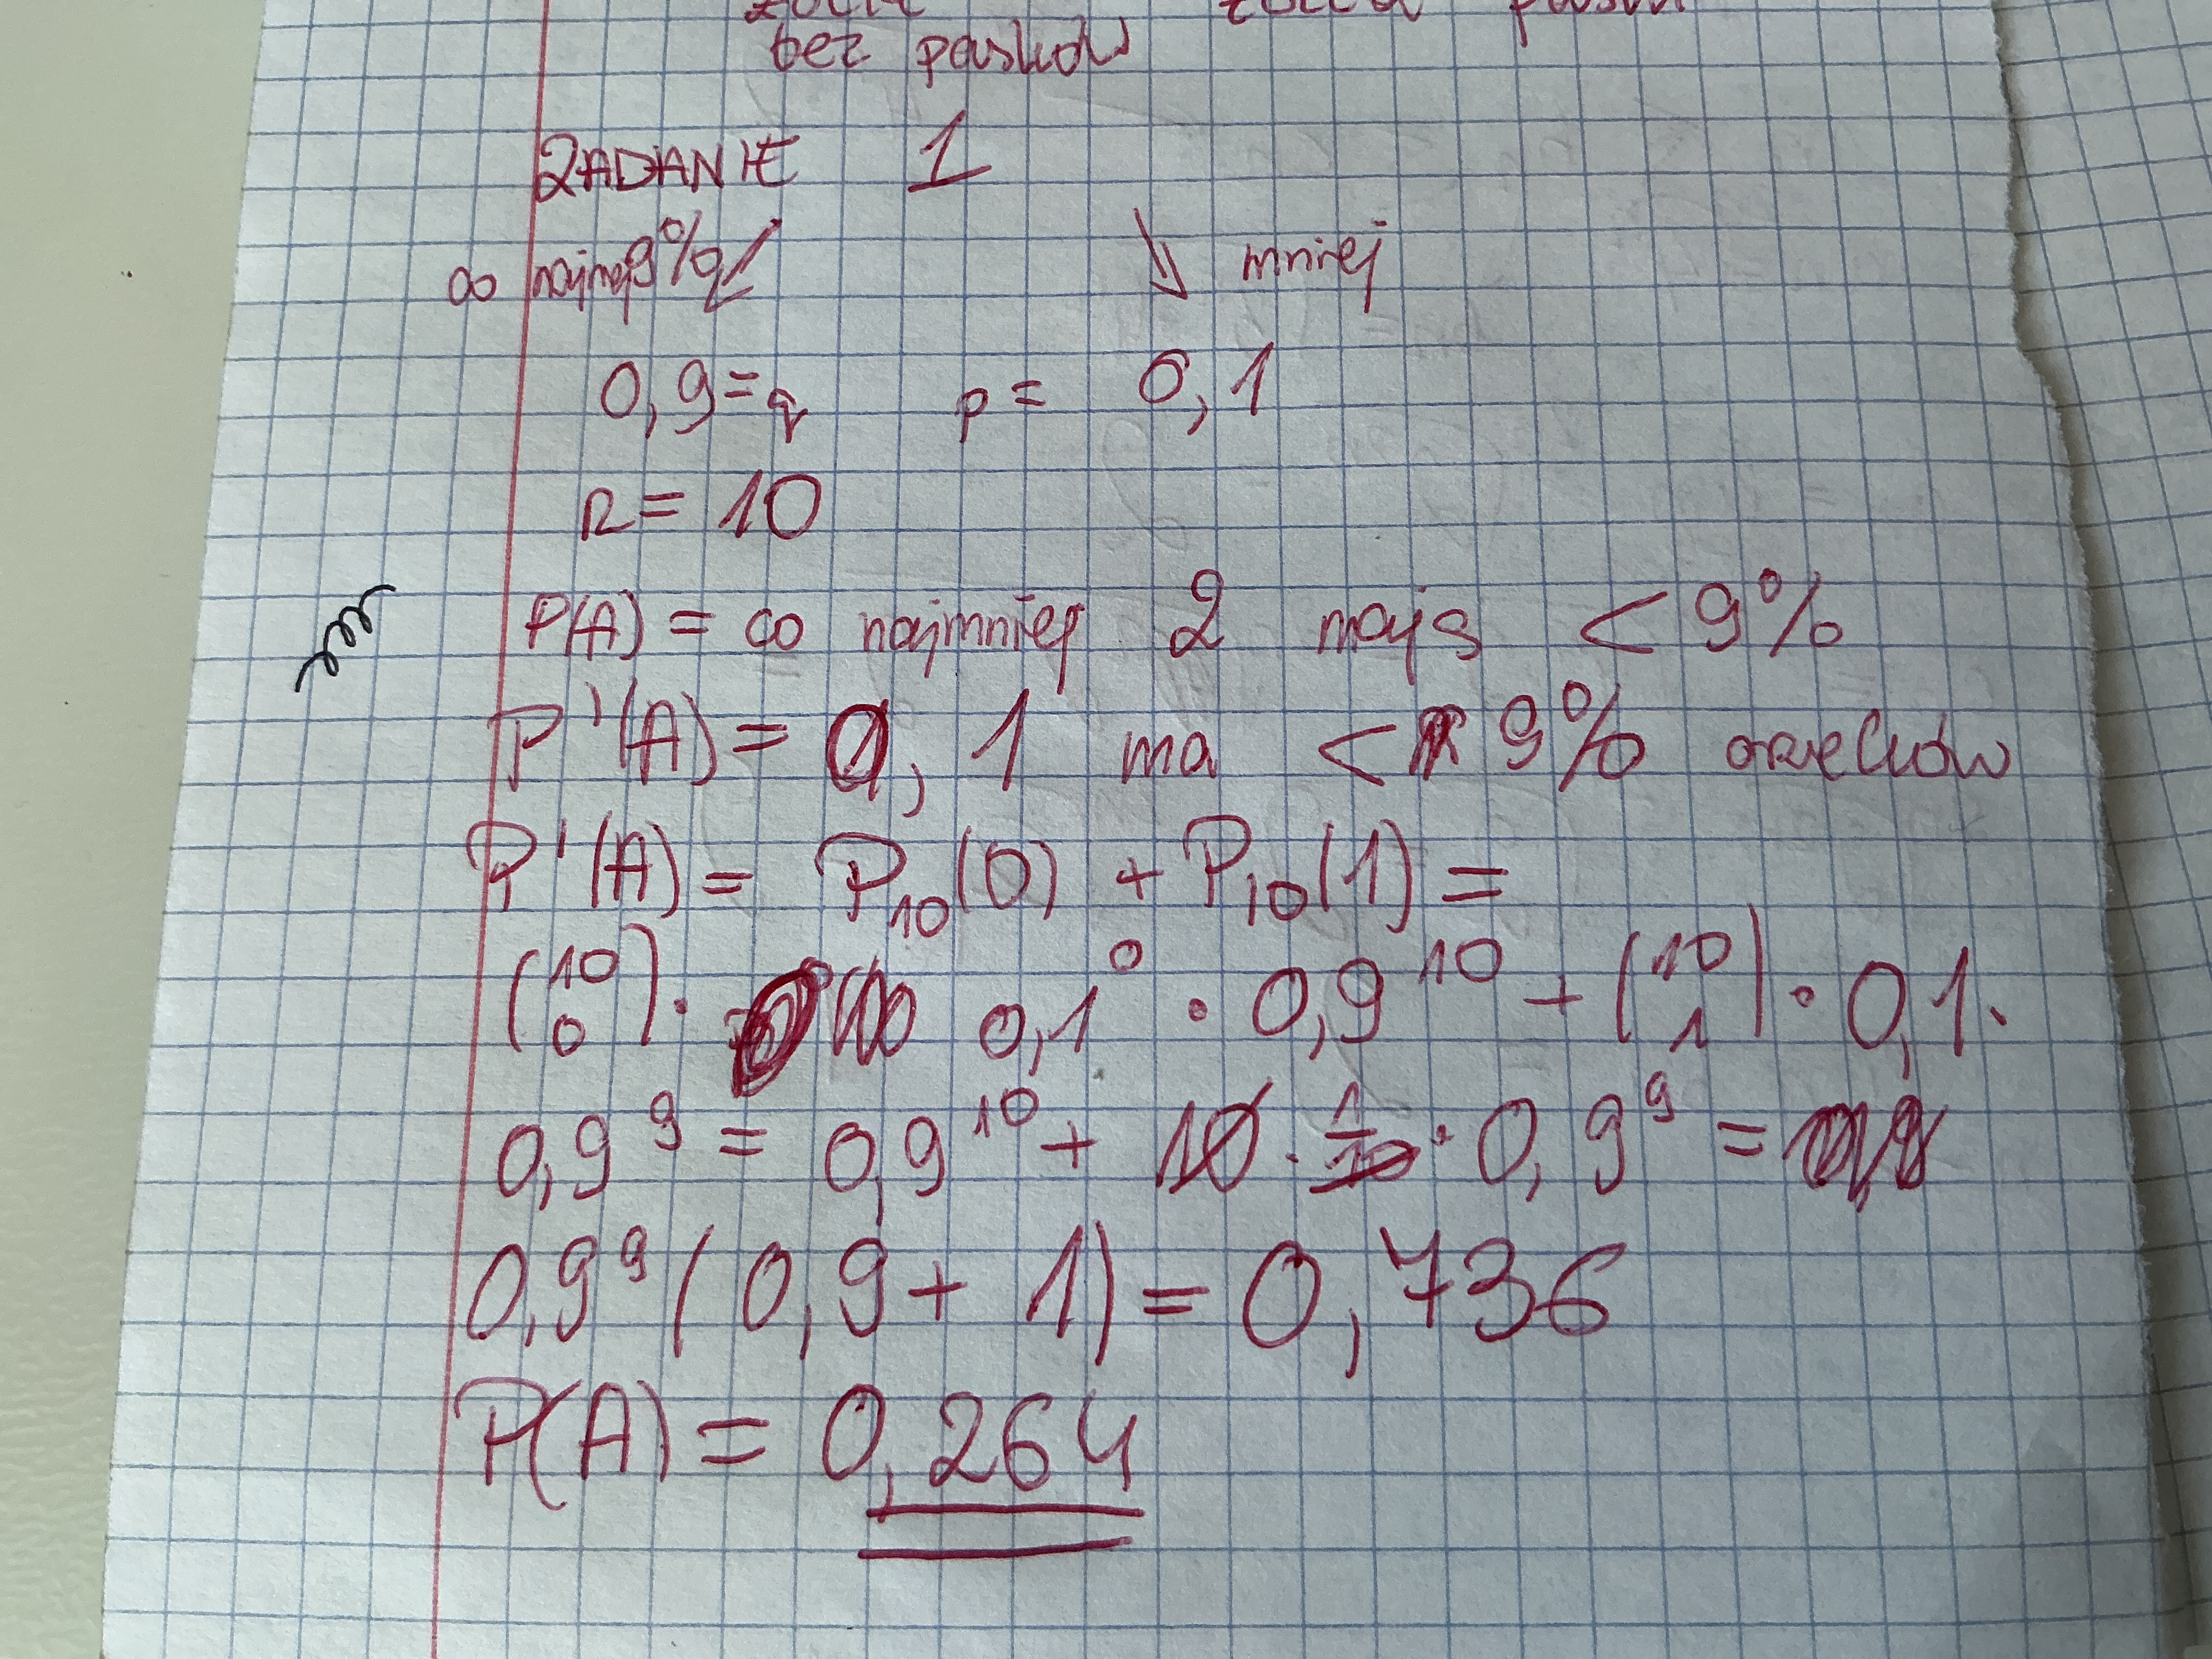 bez pasków
ZADANIE 1
co najmej 9% mniej
0,9=q p= 0,1
n= 10
P(A) = co najmniej 2 mają < 9%
P'(A) = 0, 1 ma < 9% orzechów
P'(A) = P₁₀(0) + P₁₀(1) =
(10 0) · 0,1⁰ · 0,9¹⁰ + (10 1) · 0,1 ·
0,9⁹ = 0,9¹⁰ + 10 · 1/10 · 0,9⁹ =
0,9⁹ (0,9 + 1) = 0,736
P(A) = 0,264